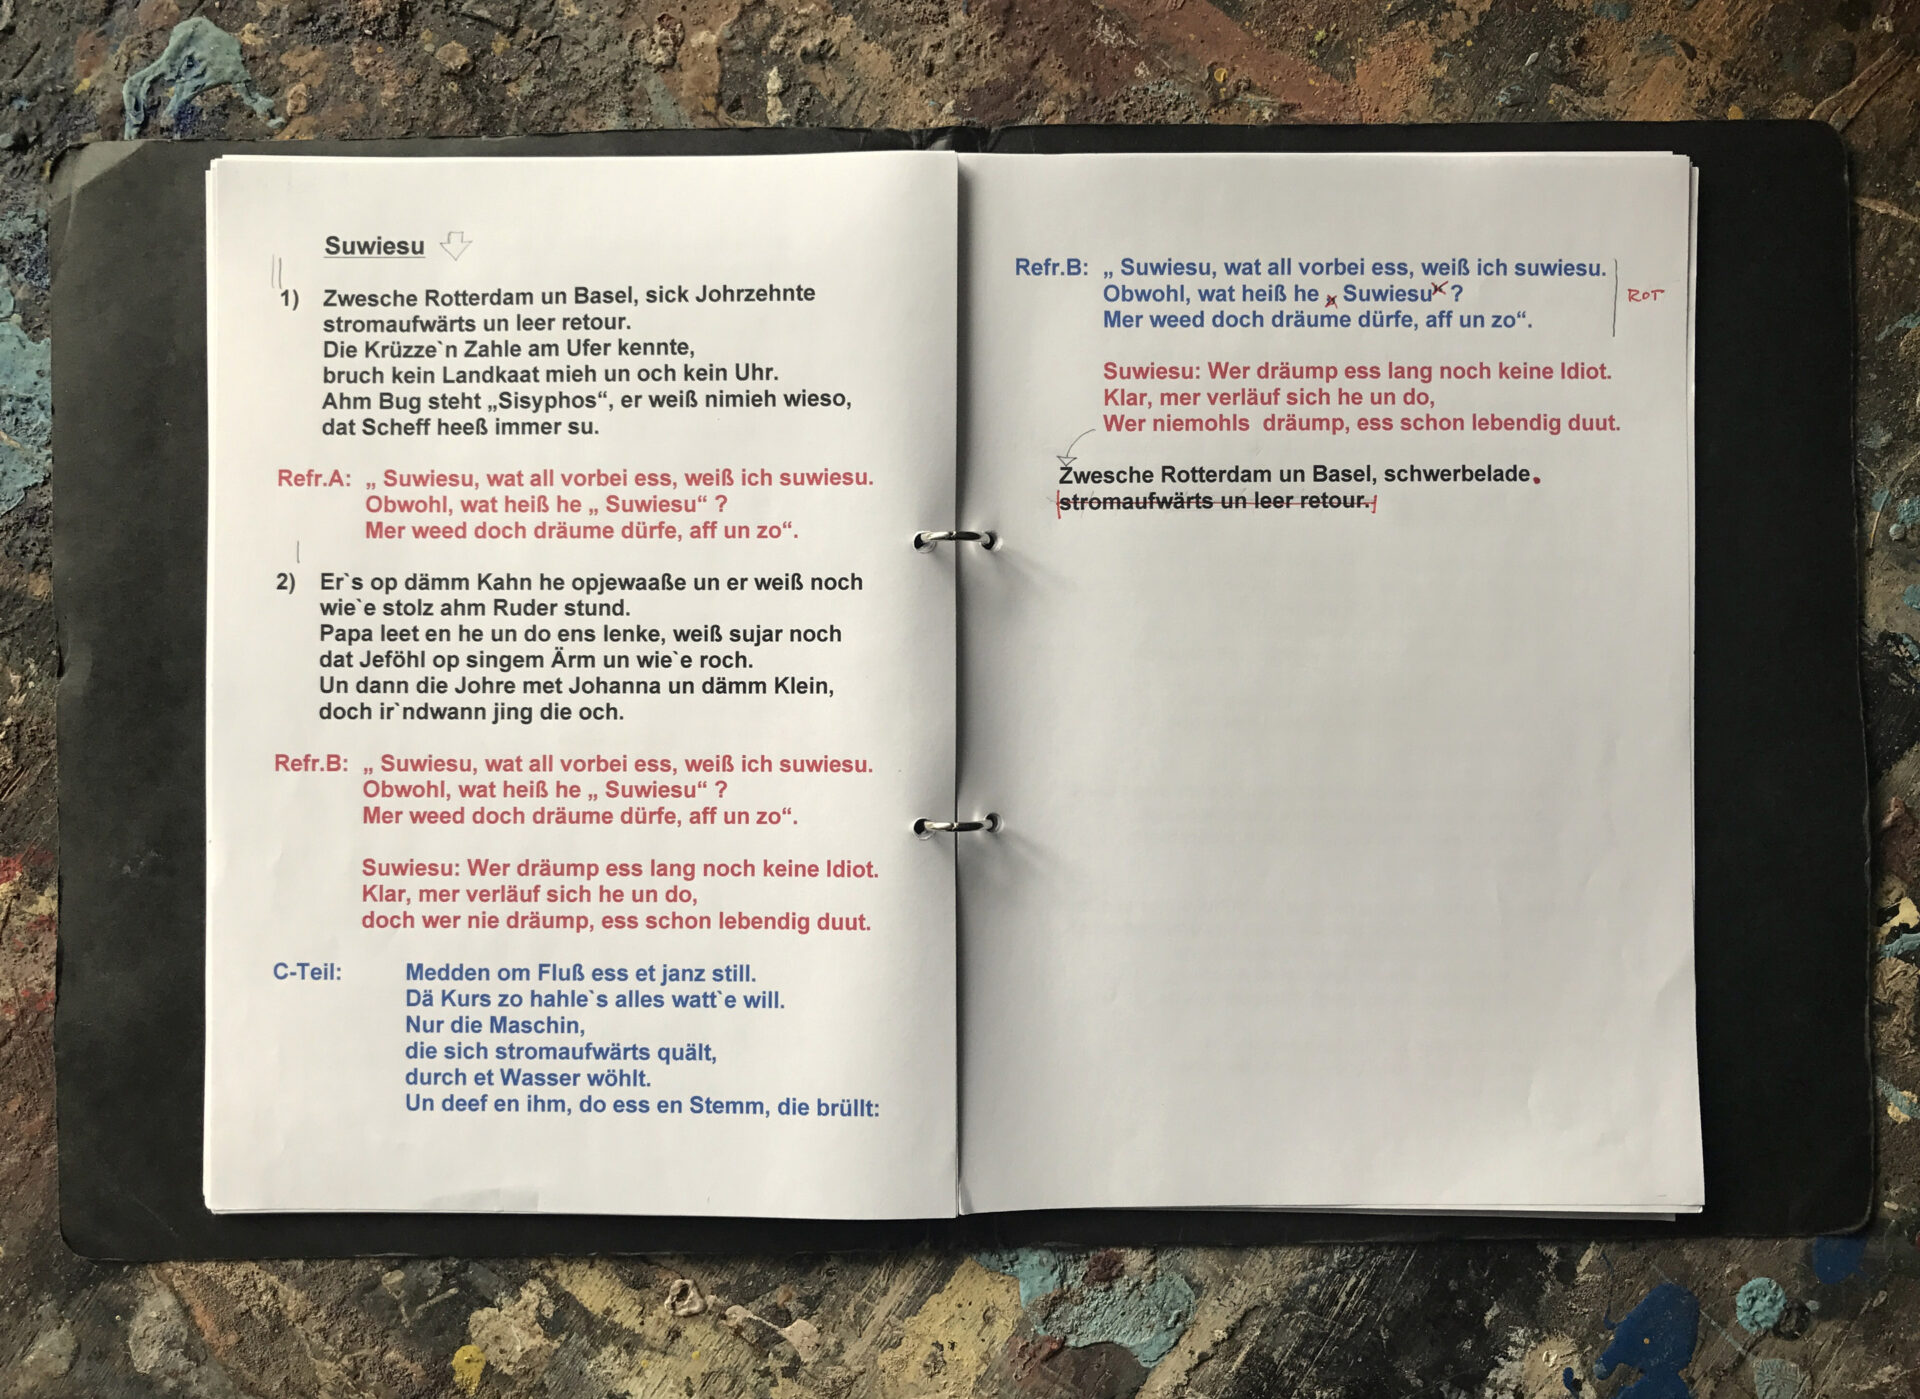 Suwiesu
1) Zwesche Rotterdam un Basel, sick Johrzehnte
stromaufwärts un leer retour.
Die Krüzze`n Zahle am Ufer kennte,
bruch kein Landkaat mieh un och kein Uhr.
Ahm Bug steht „Sisyphos“, er weiß nimieh wieso,
dat Scheff heeß immer su.
Refr.A: „ Suwiesu, wat all vorbei ess, weiß ich suwiesu.
Obwohl, wat heiß he „ Suwiesu“ ?
Mer weed doch dräume dürfe, aff un zo“.
2) Er`s op dämm Kahn he opjewaaße un er weiß noch
wie`e stolz ahm Ruder stund.
Papa leet en he un do ens lenke, weiß sujar noch
dat Jeföhl op singem Ärm un wie`e roch.
Un dann die Johre met Johanna un dämm Klein,
doch ir`ndwann jing die och.
Refr.B: „ Suwiesu, wat all vorbei ess, weiß ich suwiesu.
Obwohl, wat heiß he „ Suwiesu“ ?
Mer weed doch dräume dürfe, aff un zo“.
Suwiesu: Wer dräump ess lang noch keine Idiot.
Klar, mer verläuf sich he un do,
doch wer nie dräump, ess schon lebendig duut.
C-Teil: Medden om Fluß ess et janz still.
Dä Kurs zo hahle`s alles watt`e will.
Nur die Maschin,
die sich stromaufwärts quält,
durch et Wasser wöhlt.
Un deef en ihm, do ess en Stemm, die brüllt:
Refr.B: „ Suwiesu, wat all vorbei ess, weiß ich suwiesu.
Obwohl, wat heiß he „ Suwiesu“ ?
Mer weed doch dräume dürfe, aff un zo“.
ROT
Suwiesu: Wer dräump ess lang noch keine Idiot.
Klar, mer verläuf sich he un do,
Wer niemohls dräump, ess schon lebendig duut.
Zwesche Rotterdam un Basel, schwerbelade.
stromaufwärts un leer retour.